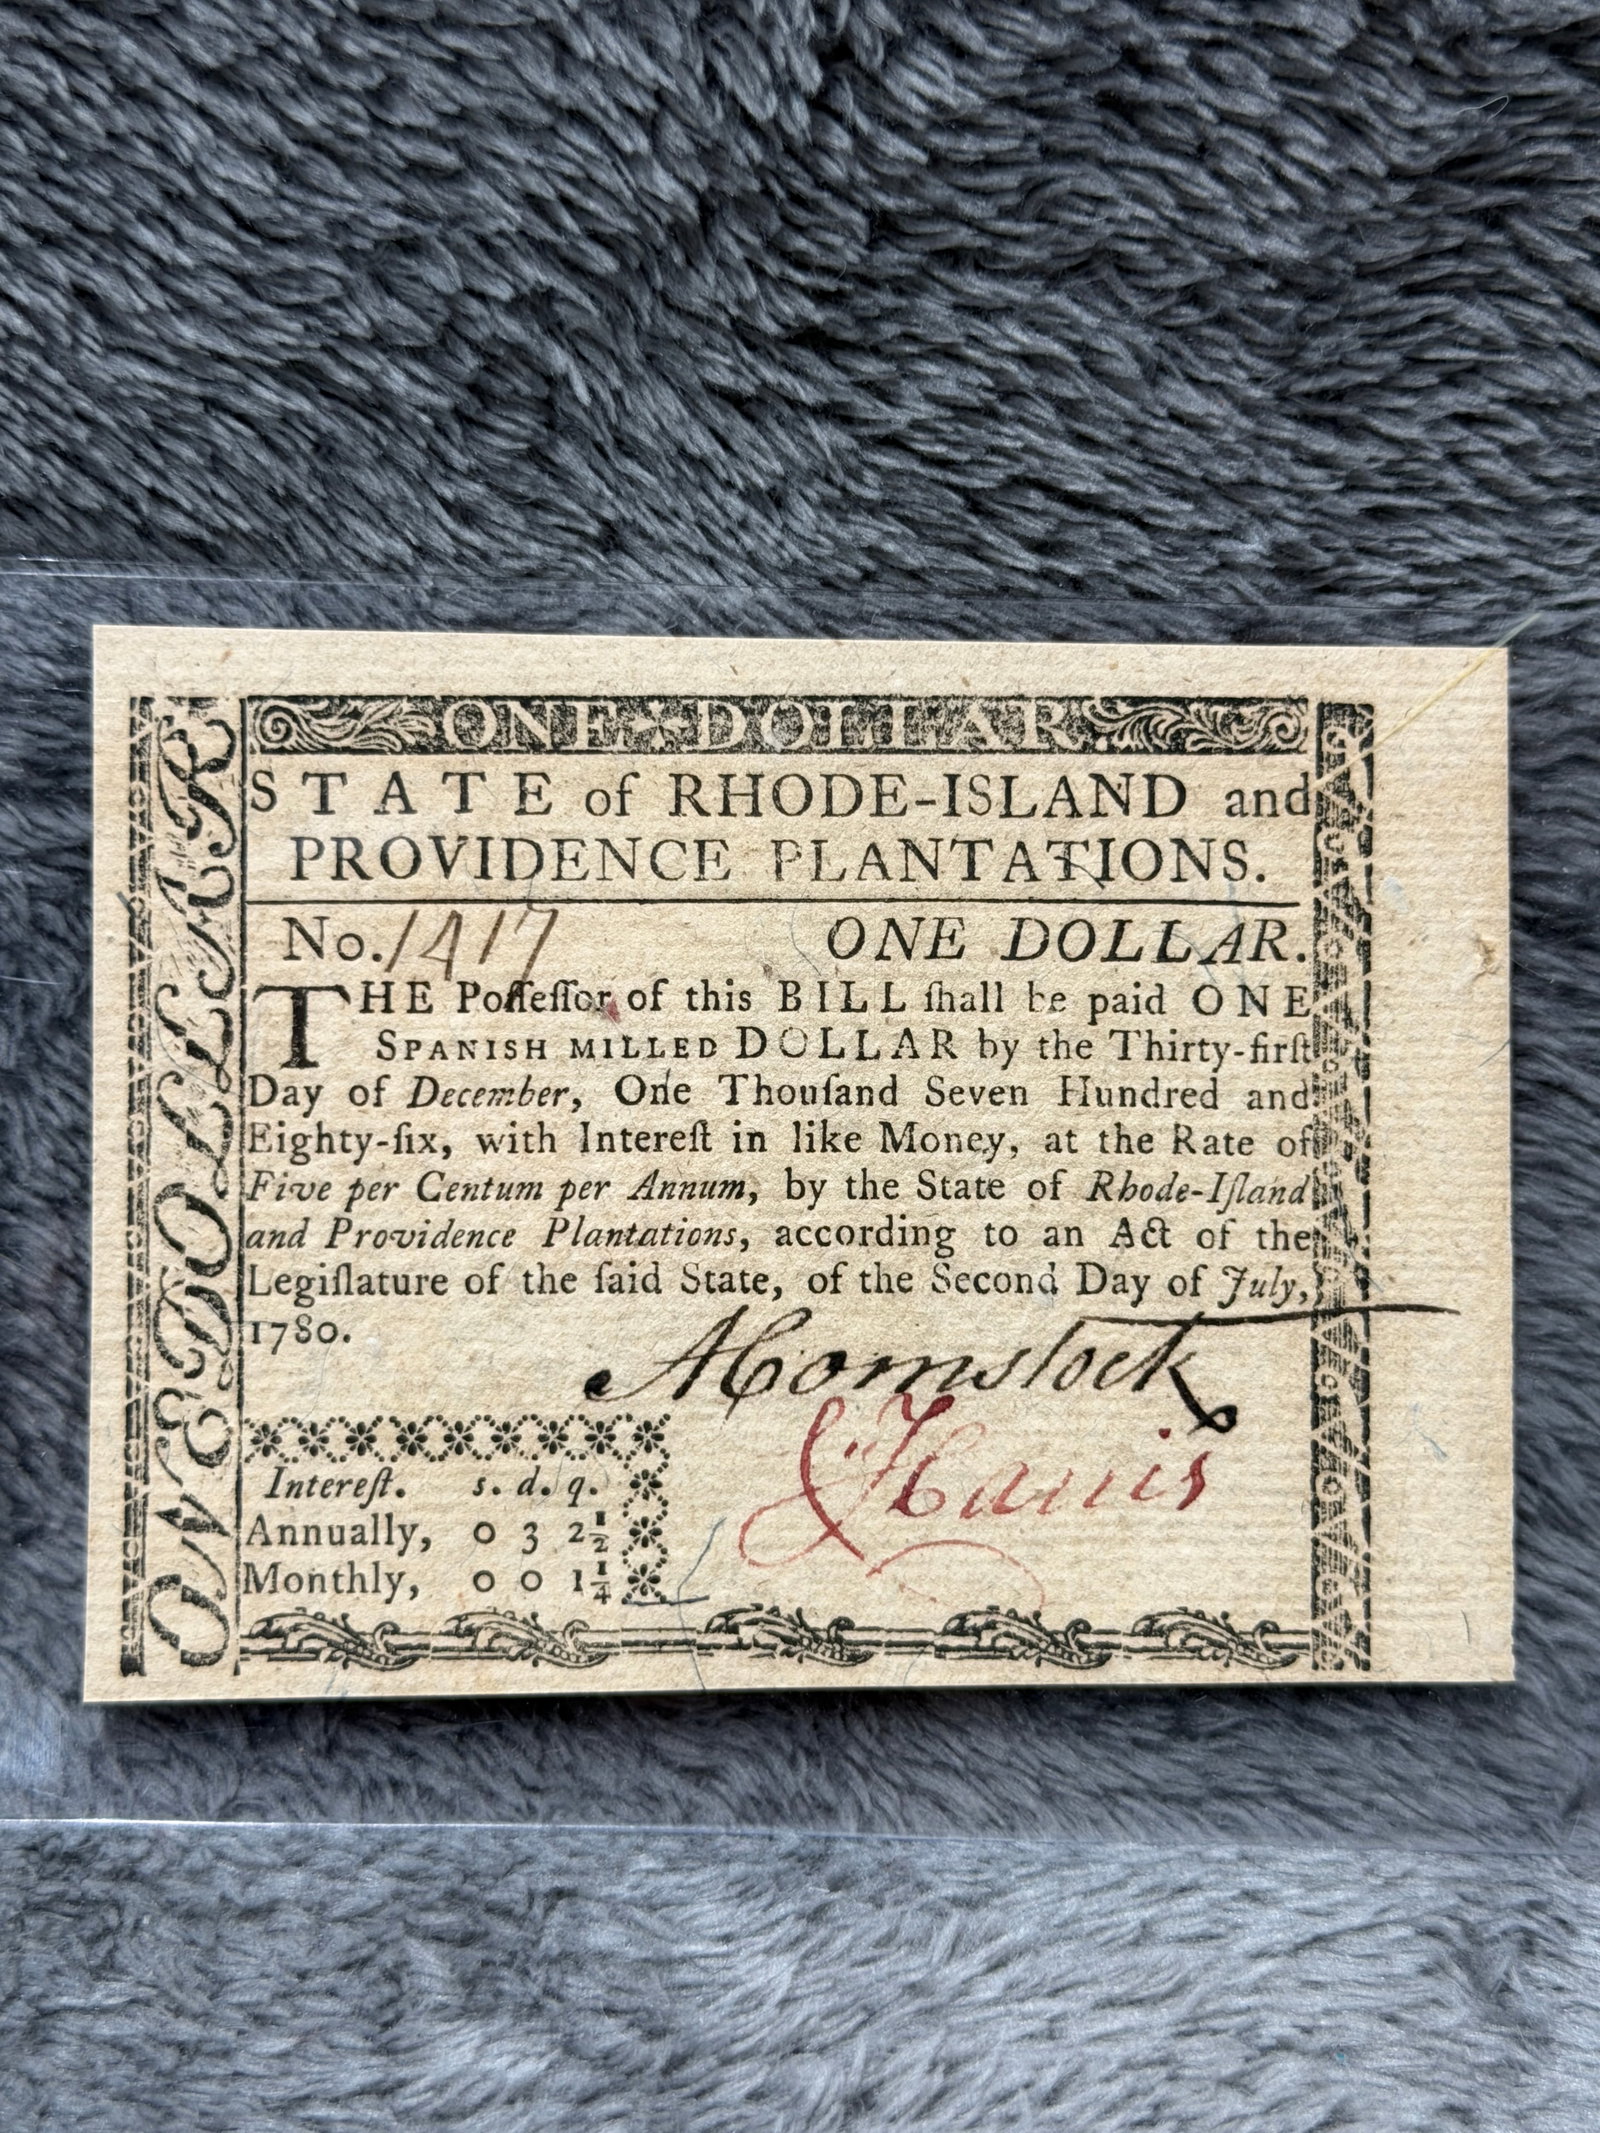 ONE DOLLAR.
ONE DOLLAR
STATE of RHODE-ISLAND and
PROVIDENCE PLANTATIONS.
No. 1417 ONE DOLLAR.
THE Poſſeſſor of this BILL ſhall be paid ONE
SPANISH MILLED DOLLAR by the Thirty-firſt
Day of December, One Thouſand Seven Hundred and
Eighty-ſix, with Intereſt in like Money, at the Rate of
Five per Centum per Annum, by the State of Rhode-Iſland
and Providence Plantations, according to an Act of the
Legiſlature of the ſaid State, of the Second Day of July,
1780.
A Comstock
J Harris
Intereſt. s. d. q.
Annually, 0 3 2½
Monthly, 0 0 1¼